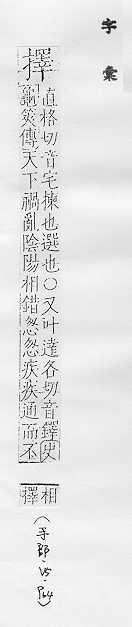 字彙
擇
直格切音宅揀也選也○又叶達各切音鐸史
龜筴傳天下禍亂陰陽相錯悤悤疾疾通而不
相
擇
(手部·